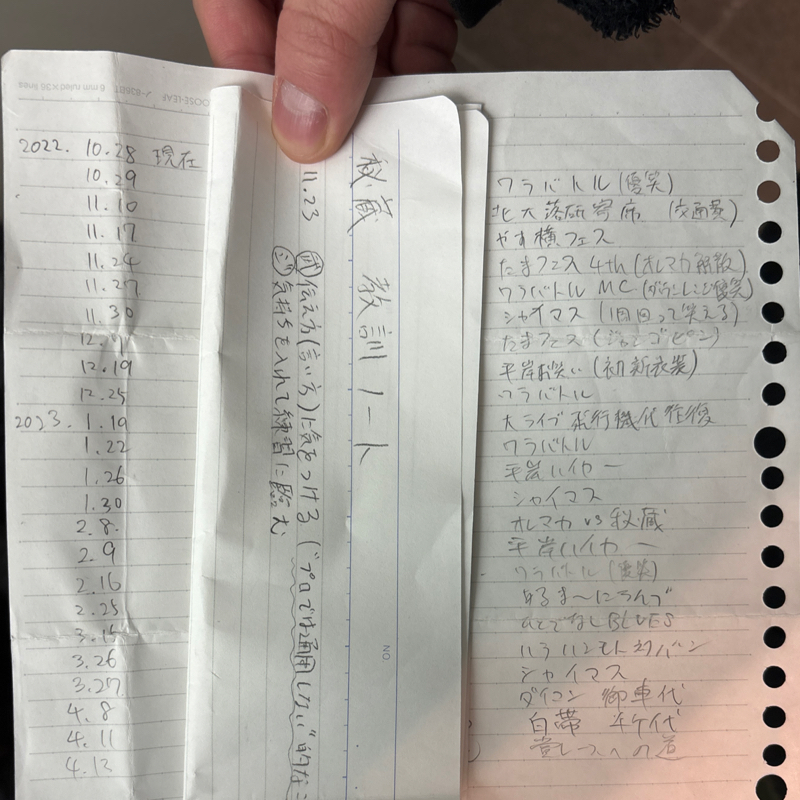 6 mm ruled×36 lines
2022. 10.28 現在
10.29
11.10
11.17
11.24
11.27
11.30
12.
12.19
12.25
2023. 1.19
1.22
1.26
1.30
2.8.
2.9
2.16
2.25
3.15
3.26
3.27
4.8
4.11
4.13
秘蔵 教訓ノート
11.23 伝え方(言い方)に気をつける ("プロでは通用しない"的な
気持ちを入れて練習に臨む
NO.
ワラバトル(優笑)
北大落研寄席 (交通費)
やす横フェス
たまフェス 4th (オレマカ解散)
ワラバトル MC (優笑)
シャイマス (1周回って笑える)
たまフェス
平岸お笑い (初新衣装)
ワラバトル
大ライブ 飛行機代 往復
ワラバトル
平岸ハイカー
シャイマス
オレマカ vs 秘蔵
平岸ハイカー
ワラバトル (優笑)
ひとでなしBLUES
シャイマス
ダイコン 御車代
白帯 斗ケ代
への道